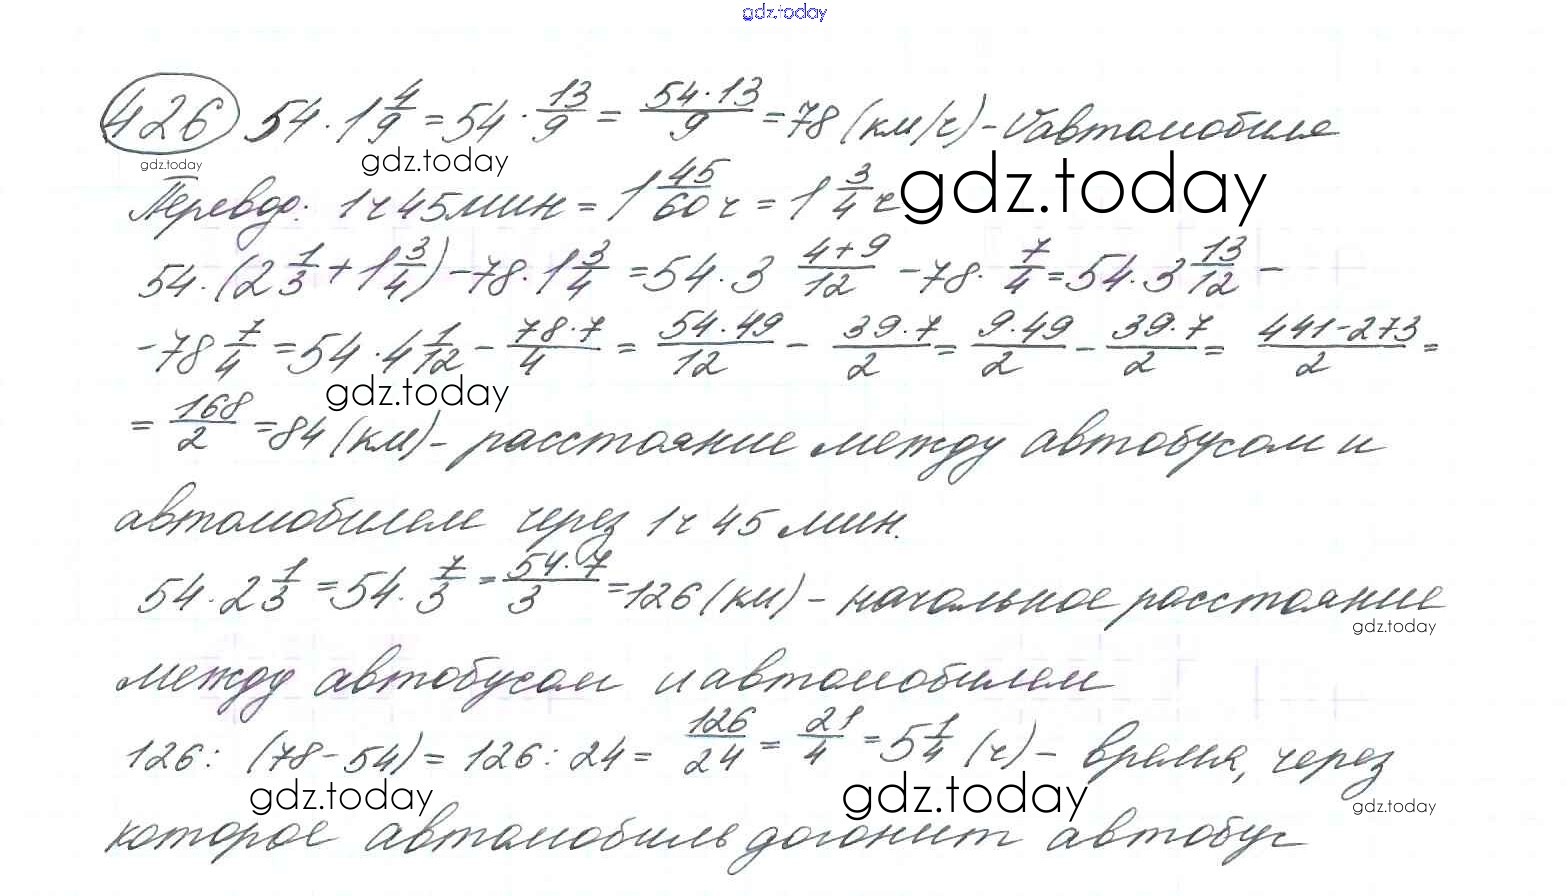 gdz.today
426 54 · 1 4/9 = 54 · 13/9 = 54·13/9 = 78 (км/ч) - V автомобиля
gdz.today gdz.today
Перевод: 1ч 45мин = 1 45/60 ч = 1 3/4 ч gdz.today
54 · (2 1/3 + 1 3/4) - 78 · 1 3/4 = 54 · 3 4+9/12 - 78 · 7/4 = 54 · 3 13/12 -
- 78 7/4 = 54 · 4 1/12 - 78·7/4 = 54·49/12 - 39·7/2 = 9·49/2 - 39·7/2 = 441-273/2 =
gdz.today
= 168/2 = 84 (км) - расстояние между автобусом и
автомобилем через 1ч 45 мин.
54 · 2 1/3 = 54 · 7/3 = 54·7/3 = 126 (км) - начальное расстояние
gdz.today
между автобусом и автомобилем
126 : (78 - 54) = 126 : 24 = 126/24 = 21/4 = 5 1/4 (ч) - время, через
gdz.today gdz.today gdz.today
которое автомобиль догонит автобус